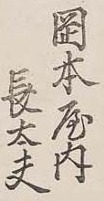 岡本屋内
長太夫